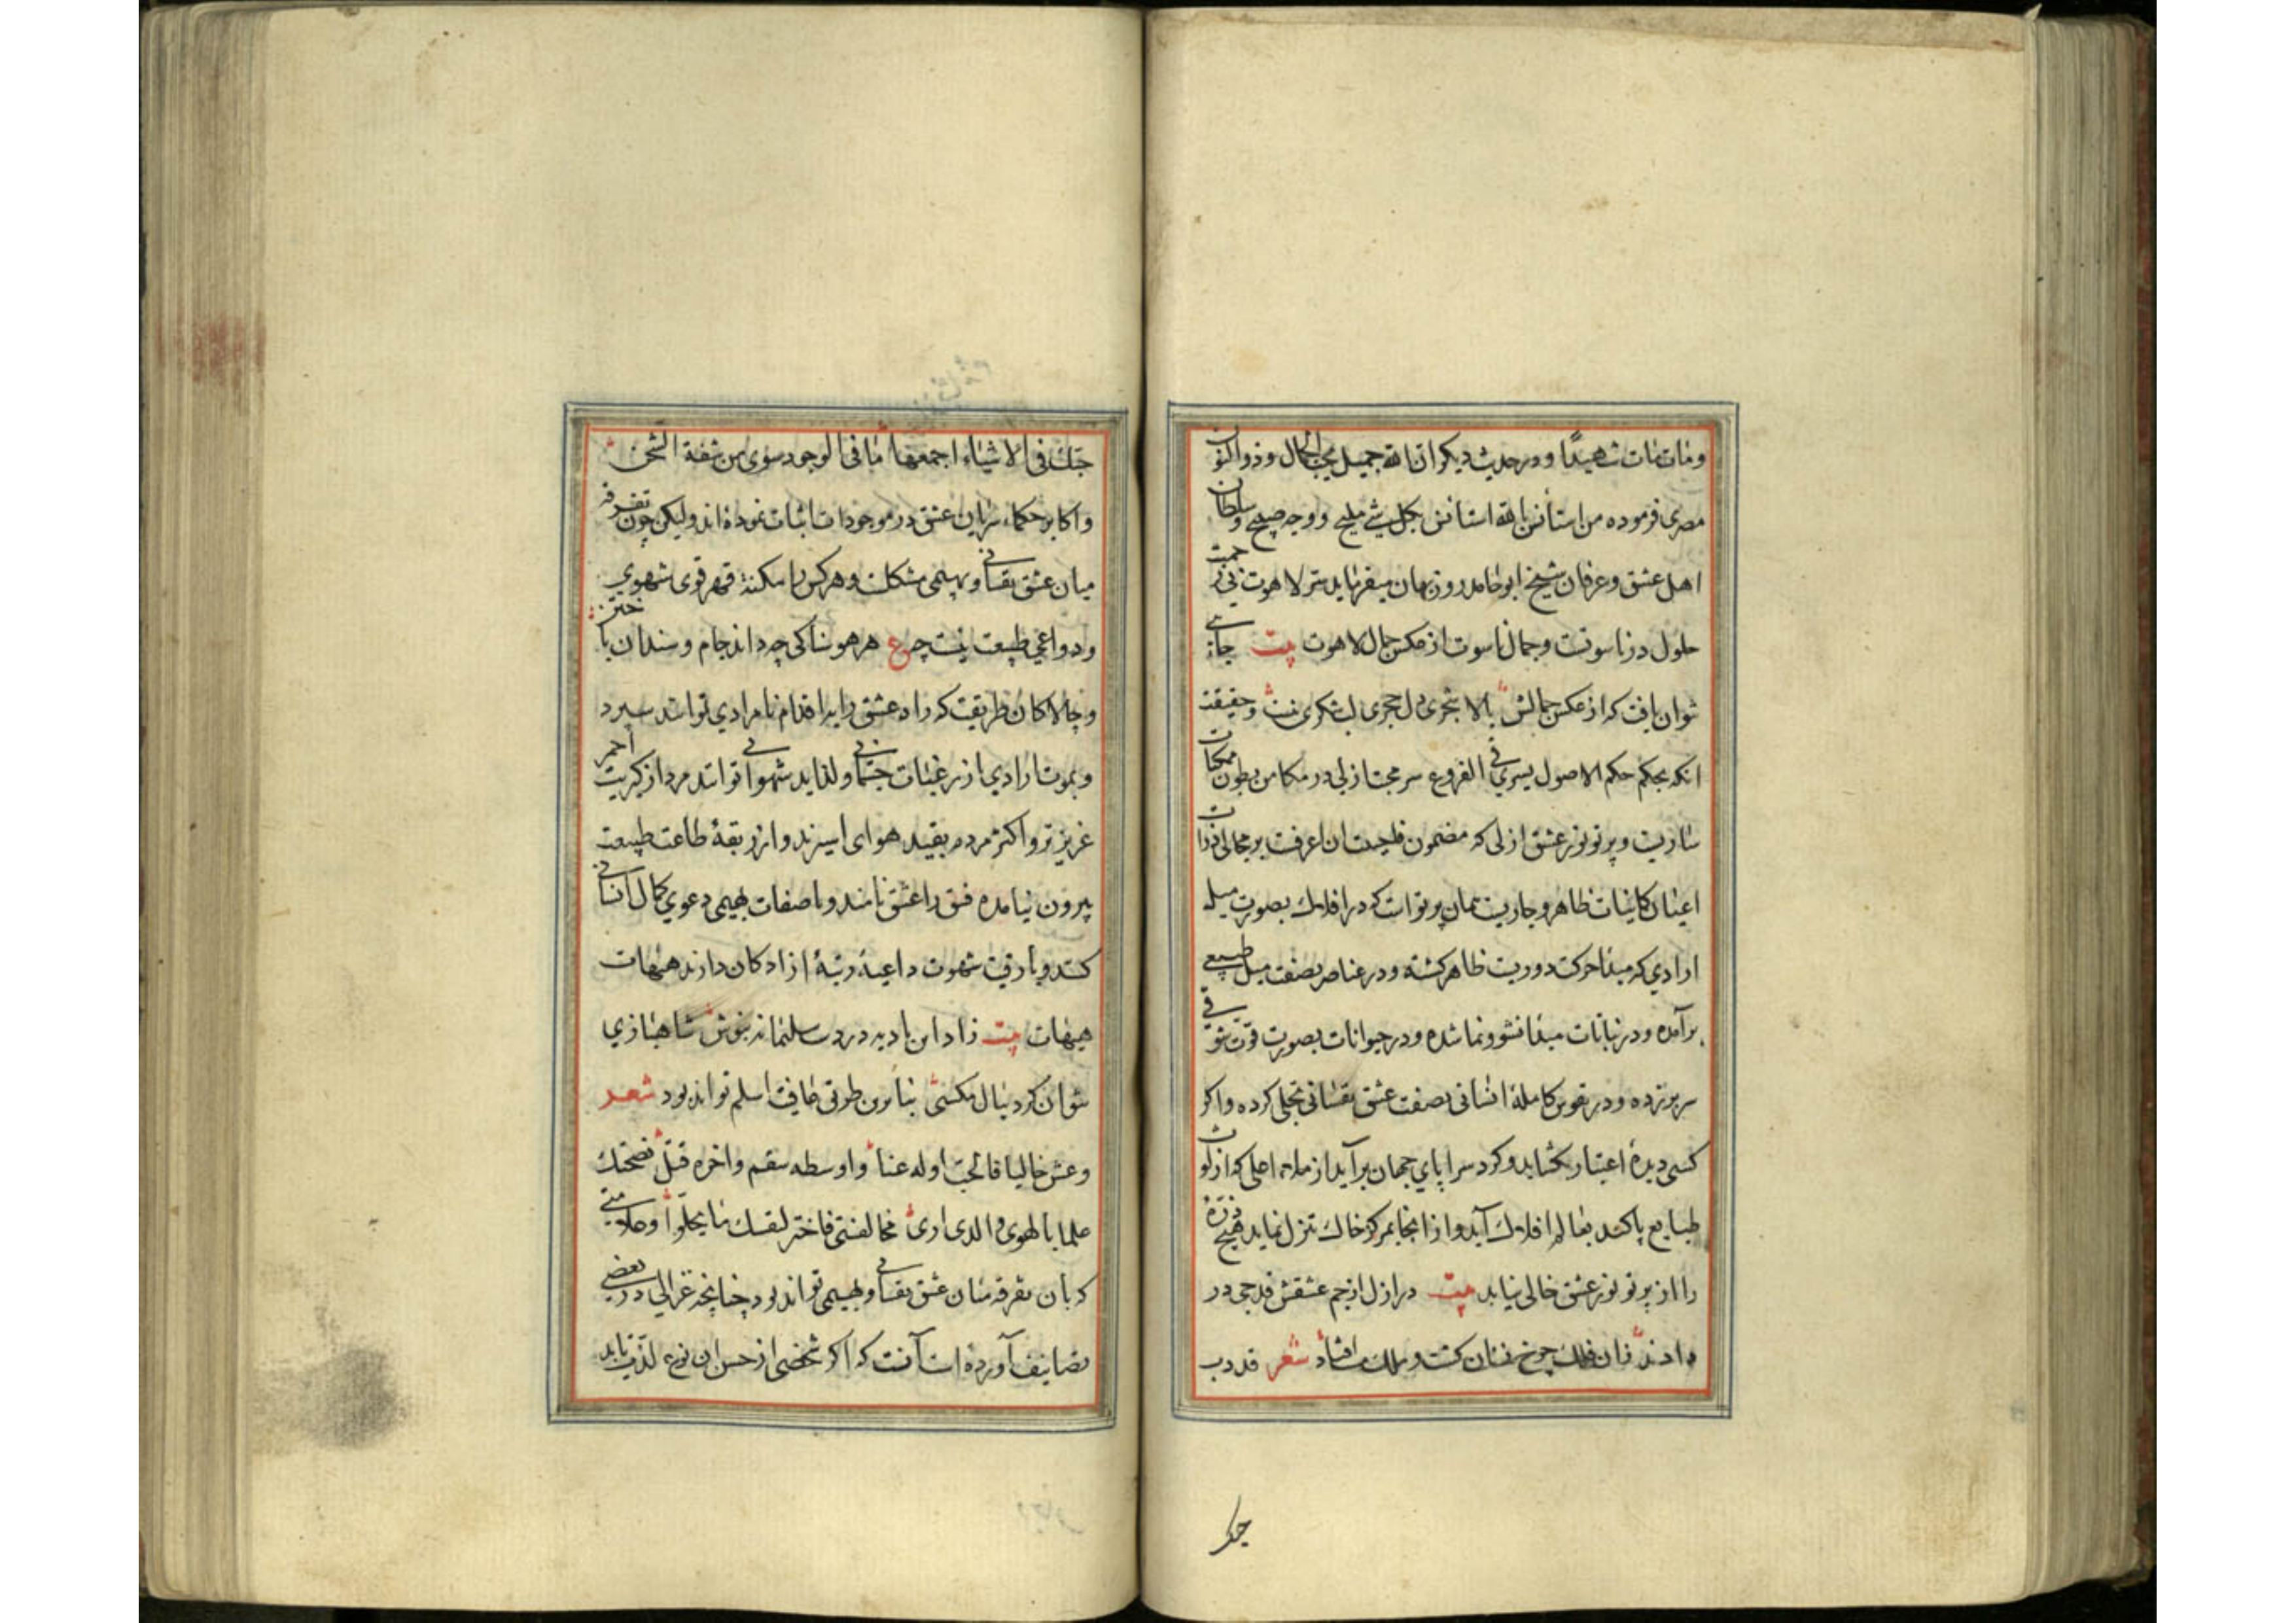 ومات مات شهیدًا و در حدیث دیکر ان الله جمیل یحب الجمال و ذوالنون
مصری فرموده من استأنس بالله استانس بکل شیٔ ملیح و وجه صبیح و سلطان
اهل عشق و عرفان شیخ ابو محمد روزبهان میفرماید سر لاهوت بی زحمت
حلول در ناسوتست و جمال ناسوت از عکس جمال لاهوت بیت جائی
نتوان یافت که از عکس جمالش بالا شجری دل حجری لب شکری نیست و حقیقت
انکه بحکم حکم الاصول یسری فی الفروع سر محبت ازلی در مکامن بطون ممکنات
ساریت و پرتو نور عشق ازلی که مضمون فاحببت ان اعرف بر مجالی ذرات
اعیان کاینات ظاهر و جاریست همان پرتو است که در افلاک بصورت میل
ارادی که مبدا حرکت دوریت ظاهر کشته و در عناصر بصفت میل طبیعی
برآمده و در نباتات مبدا نشو و نما شده و در حیوانات بصورت قوت شوقی
سر برزده و در نفوس کاملهٔ انسانی بصفت عشق نفسانی تجلی کرده و اکر
کسی دیدهٔ اعتبار بکشاید و کرد سراپای جهان برآید از ملاء اعلی که از لوث
طبایع پاکند بعالم افلاک آید و از انجا بمرکز خاک تنزل نماید هیچ ذرهٔ
را از پرتو نور عشق خالی نیابد بیت در ازل از خم عشقش قدحی در
دادند زان فلک چرخ زنان کشت و ملک مست افتاد شعر قد دب
حبک
حبک فی الاشیاء اجمعها ما فی الوجود سوی من شفة الشجن
و اکابر حکماء سریان عشق در موجودات اثبات نموده اند ولیکن چون تفرقه
میان عشق نفسانی و بهیمی مشکلست و هر کس را مکنة قهر قوی شهوی
و دواعی طبیعت نیست چه ع هر هوسناکی چه داند جام و سندان باختن
و چالاکان طریقت که راه عشق را با اقدام نامرادی توانند سپرد
و بموت ارادی از رغبات جسمانی و لذاید شهوانی توانند مرد از کبریت احمر
عزیزتر و اکثر مردم بقید هوای اسیرند و از ربقهٔ طاعت طبیعت
بیرون نیامده فسق را عشق نامند و با صفات بهیمی دعوی کمال انسانی
کنند و با رقیت شهوت داعیهٔ رتبهٔ ازادکان دارند هیهات
هیهات بیت زاد این بادیه درد ... شاهبازی
نتوان کرد ببال مکسی بنابرین طریق عافیت اسلم تواند بود شعر
و عش خالیا فالحب اوله عنا و اوسطه سقم و اخره قتل نصحتک
علما بالهوی و الذی اری مخالفتی فاختر لنفسک ما یحلوا و علامتی
که بان تفرقه میان عشق نفسانی و بهیمی تواند بود چنانچه غزالی در بعضی
تصانیف آورده است آنست که اکر شخصی از حسن ان نوع لذت یابد